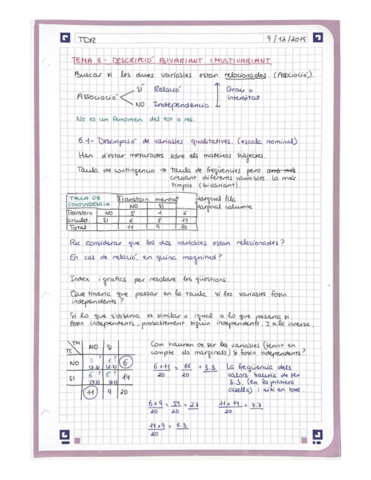 TDR 9/12/2015
TEMA 6 - DESCRIPCIÓ BIVARIANT I MULTIVARIANT
Buscar si les dues variables estan relacionades. (Associació)
Associació SI Relació Grau o intensitat
NO Independència
No es un fenomen del tot o res.
6.1- Descripció de variables qualitatives. (escala nominal)
Han d'estar mesurades sobre els mateixos subjectes.
Taula de contingència → Taula de freqüències però
creuant diferents variables la més
simple. (bivariant).
TAULA DE CONTINGÈNCIA Trastorn mental marginal fila
NO SI marginal columna
NO 5 1 6
SI 6 8 14
Total 11 9 20
Puc considerar que les dos variables estan relacionades?
En cas de relació, en quina magnitud?
Index i gràfics per resoldre les qüestions.
Que tindria que passar en la taula si les variables foren
independents?
Si lo que s'observa es similar o igual a lo que passaria si
foren independents, probablement siguin independents. I a la inversa.
TM NO SI
NO 6
SI 14
11 9 20
Com haurien de ser les variables (tenint en
compte els marginals) si foren independents?
6×11/20 = 66/20 = 3.3 La freqüència dels
valors hauria de ser
3.3 (en la primera
casella) i així en tots.
6×9/20 = 54/20 = 2.7 11×14/20 = 7.7
14×9/20 = 6.3